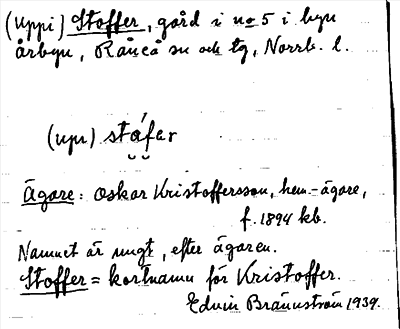 (Uppi) Stoffer, gård i no 5 i byn
Årbyn, Råneå sn och tg, Norrb. l.
(upi) ståfar
Ägare: Oskar Kristoffersson, hem.-ägare,
f. 1894 kb.
Namnet är ungt, efter ägaren.
Stoffer = kortnamn för Kristoffer.
Edvin Brännström 1939.